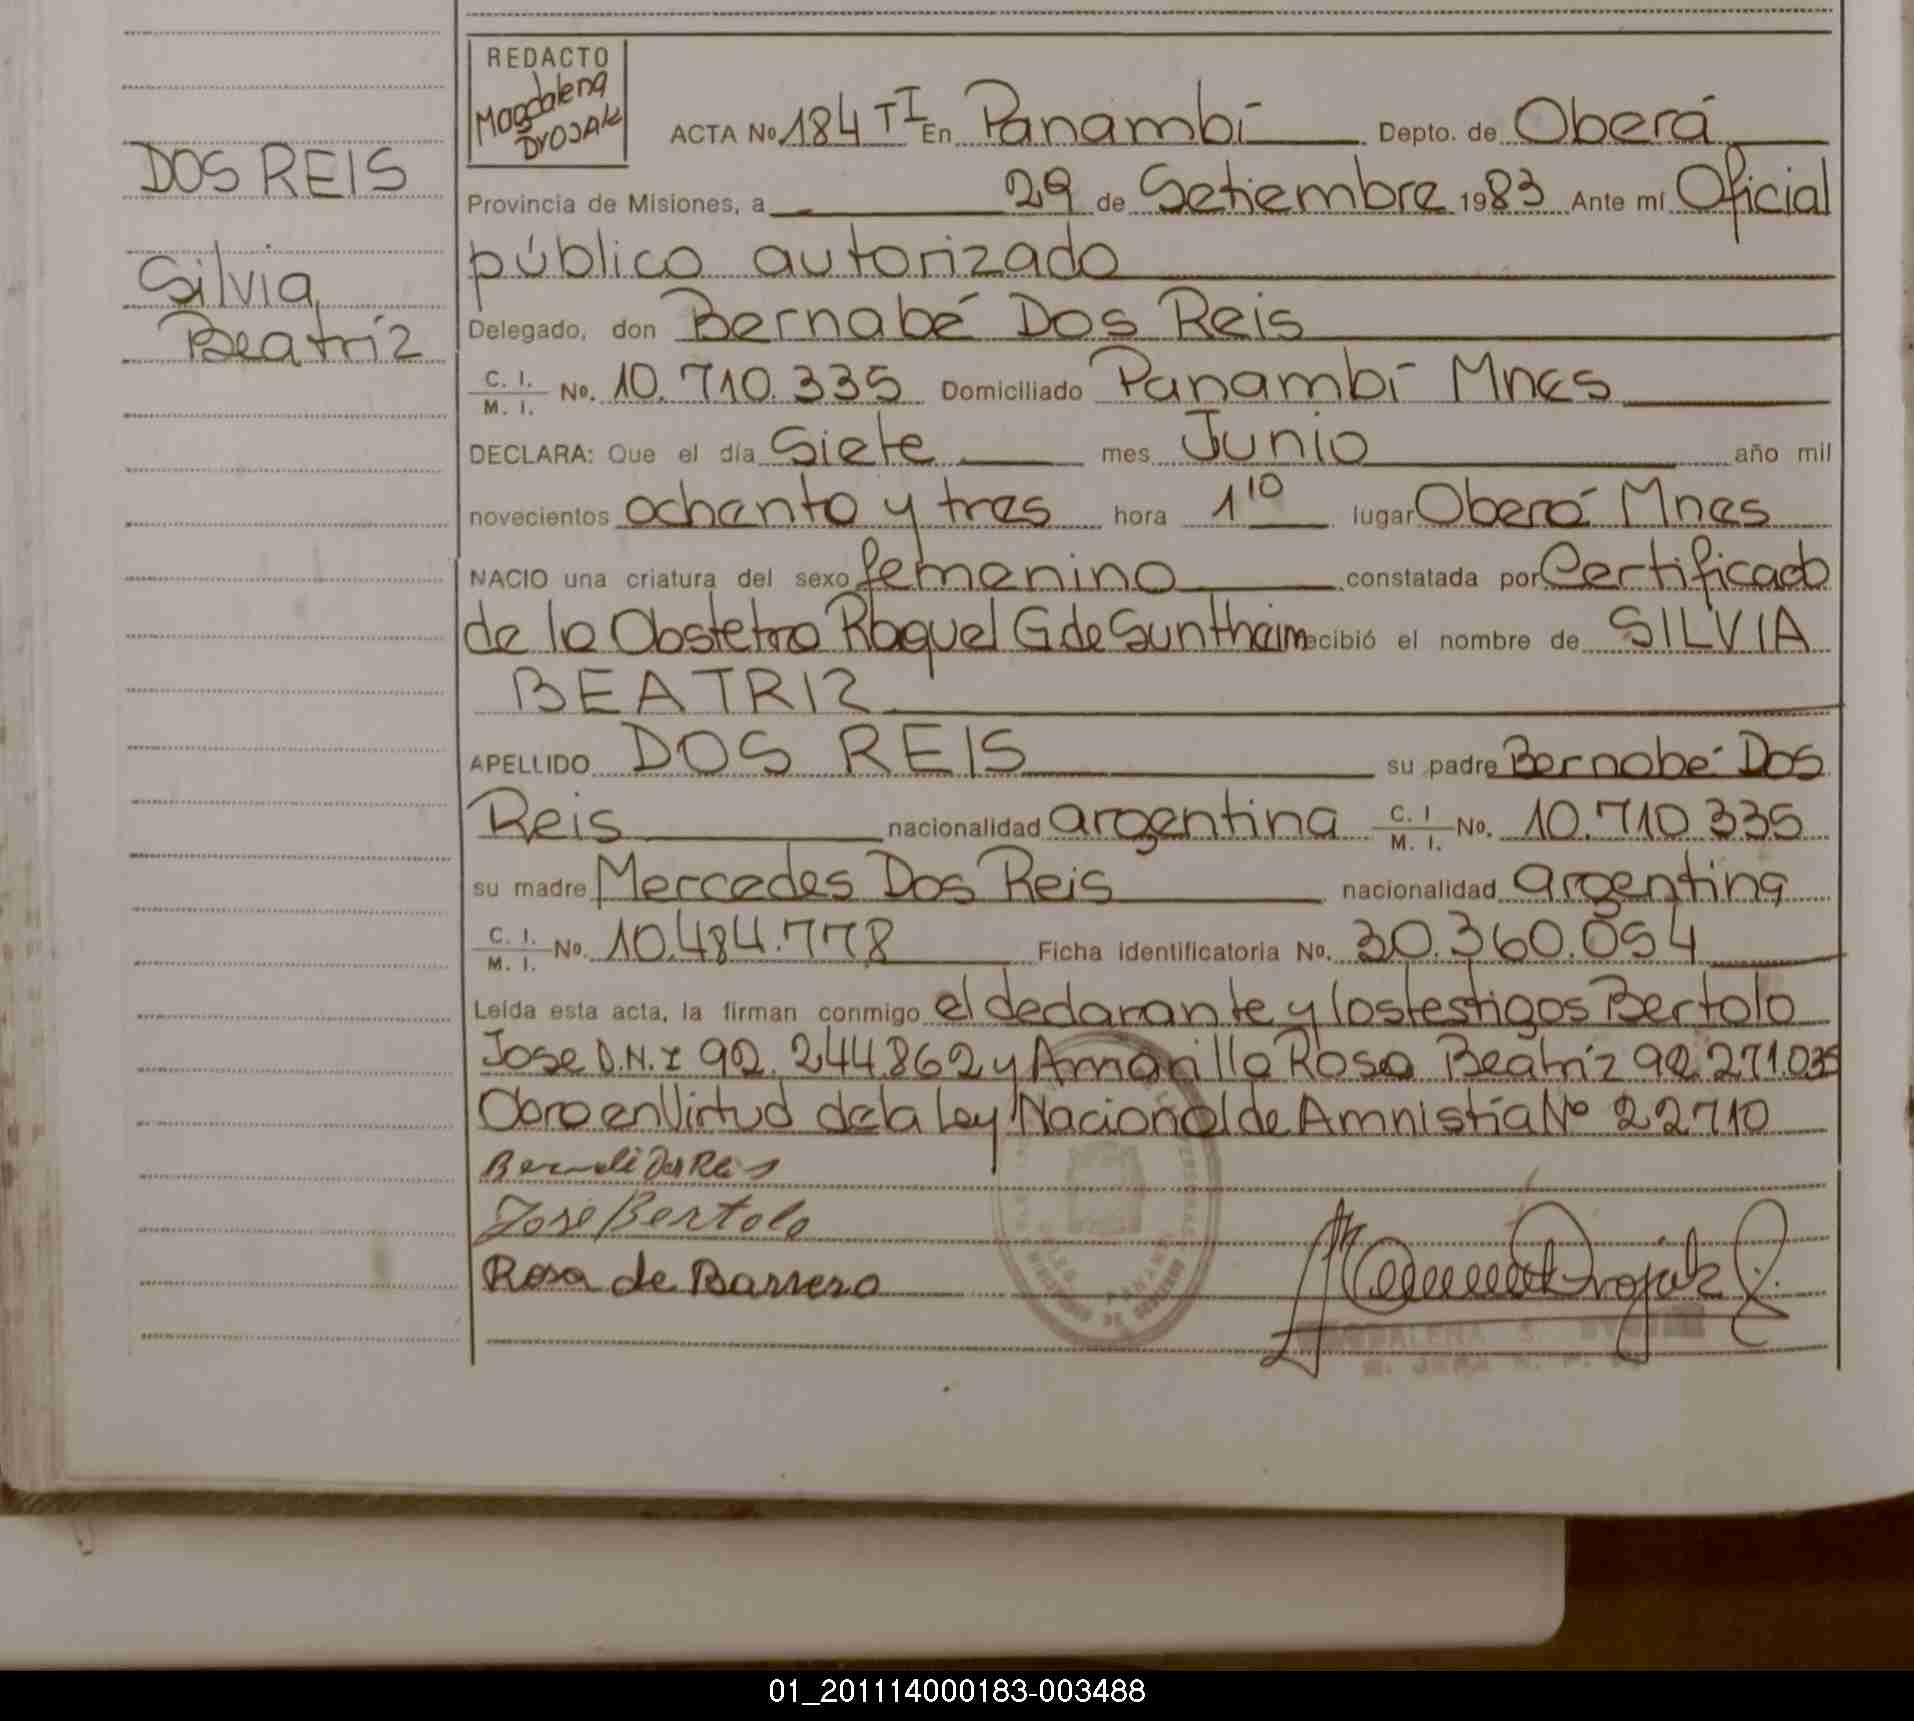 REDACTO
Magdalena
Drojak
ACTA No 184 TI En Panambí Depto. de Oberá
DOS REIS
Provincia de Misiones, a 29 de Setiembre 1983 Ante mí Oficial
público autorizado
Silvia
Beatríz
Delegado, don Bernabé Dos Reis
C. I. M. I. No. 10.710.335 Domiciliado Panambí Mnes
DECLARA: Que el día Siete mes Junio año mil
novecientos ochenta y tres hora 1 10 lugar Oberá Mnes
NACIO una criatura del sexo femenino constatada por Certificado
de la Obstetra Raquel G de Suntheim recibió el nombre de SILVIA
BEATRIZ
APELLIDO DOS REIS su padre Bernabé Dos
Reis nacionalidad argentina C. I M. I. No. 10.710.335
su madre Mercedes Dos Reis nacionalidad argentina
C. I. M. I. No. 10.484.778 Ficha identificatoria No. 30.360.054
Leída esta acta, la firman conmigo el declarante y los testigos Bertolo
Jose D.N.I 92.244.862 y Amarilla Rosa Beatríz 92.271.035
Obro en Virtud de la Ley Nacional de Amnistía Nº 22710
Bernabé Dos Reis
José Bertolo
Rosa de Barrero
PANAMBI
MINISTERIO DE GOBIERNO
MAGDALENA
01_201114000183-003488